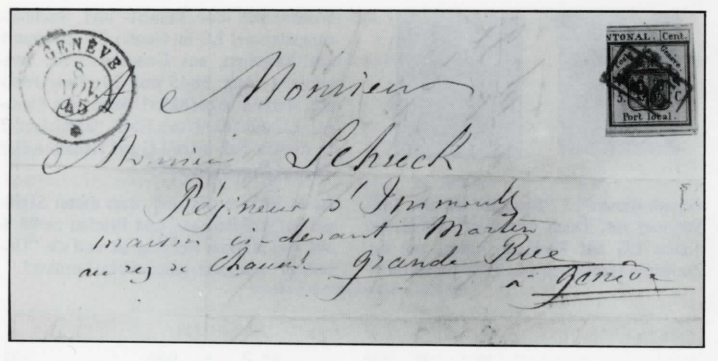 GENÈVE
8
NOV.
45
NTONAL. Cent.
Poste de Genève.
5. C
Port local.
A Monsieur
Monsieur Schreck
Régisseur d'Immeubles
maison ci-devant Martin
au rez de chaussée Grande Rue
à Genève